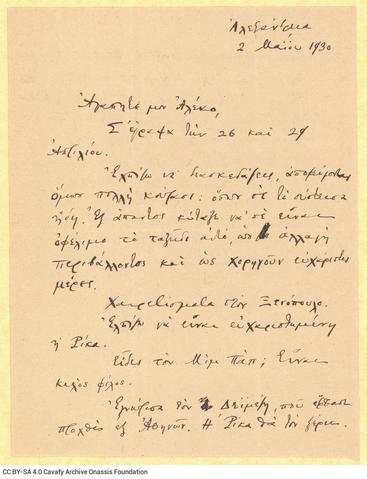 Ἀλεξάνδρεια
2 Μαΐου 1930
Ἀγαπητέ μου Ἀλέκο,
Σ' ἔγραψα τὴν 26 καὶ 29
Ἀπριλίου.
Ἐλπίζω νὰ διασκεδάζεις, ἀποφεύγοντας
ὅμως πολλὴ κούρασι: ὅπως σὲ τὸ σύστησα
ἤδη. Ἐξ ἅπαντος κύταξε νὰ σὲ εἶναι
ὠφέλιμο τὸ ταξεῖδι αὐτό, ὡς ἀλλαγὴ
περιβάλλοντος καὶ ὡς χορηγοῦν εὐχάριστες
μέρες.
Χαιρετίσματα στὸν Ξενόπουλο.
Ἐλπίζω νὰ εἶναι εὐχαριστημένη
ἡ Ρίκα.
Εἶδες τὸν Μιμ Παπ; Εἶναι
καλὸς φίλος.
Ἐγνώρισα τὸν ποὺ ἔφθασε
προχθὲς ἐξ Ἀθηνῶν. Ἡ Ρίκα θὰ τὸν ξέρει.
CC BY-SA 4.0 Cavafy Archive Onassis Foundation